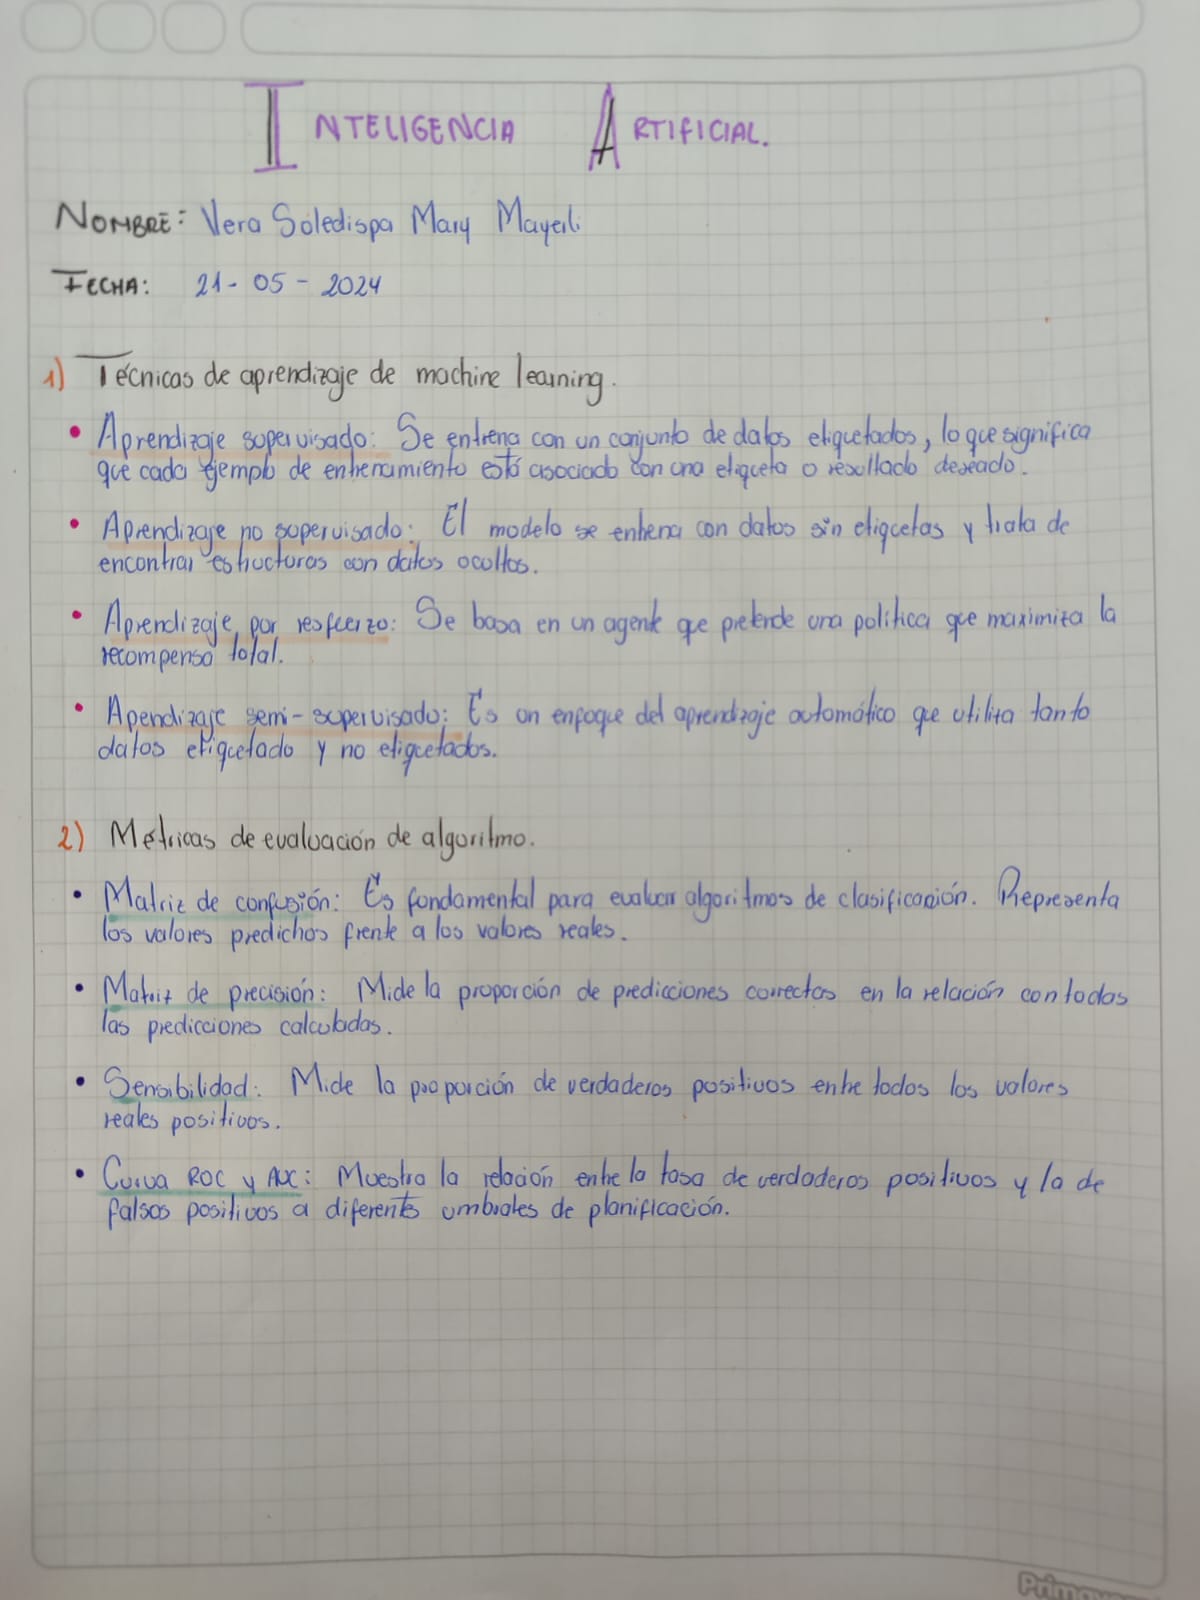 INTELIGENCIA ARTIFICIAL.
NOMBRE: Vera Soledispa Mary Mayerli
FECHA: 21-05-2024
1) Técnicas de aprendizaje de machine learning.
• Aprendizaje supervisado: Se entrena con un conjunto de datos etiquetados, lo que significa
que cada ejemplo de entrenamiento está asociado con una etiqueta o resultado deseado.
• Aprendizaje no supervisado: El modelo se entrena con datos sin etiquetas y trata de
encontrar estructuras con datos ocultos.
• Aprendizaje por resfuerzo: Se basa en un agente que pretende una política que maximiza la
recompensa total.
• Apendizaje semi-supervisado: Es un enfoque del aprendizaje automático que utiliza tanto
datos etiquetado y no etiquetados.
2) Métricas de evaluación de algoritmo.
• Matriz de confusión: Es fondamental para evaluar algoritmos de clasificación. Representa
los valores predichos frente a los valores reales.
• Matriz de precisión: Mide la proporción de predicciones correctas en la relación con todas
las predicciones calculadas.
• Sensibilidad: Mide la proporción de verdaderos positivos entre todos los valores
reales positivos.
• Curva ROC y AUC: Muestra la relación entre la tasa de verdaderos positivos y la de
falsos positivos a diferents umbrales de planificación.